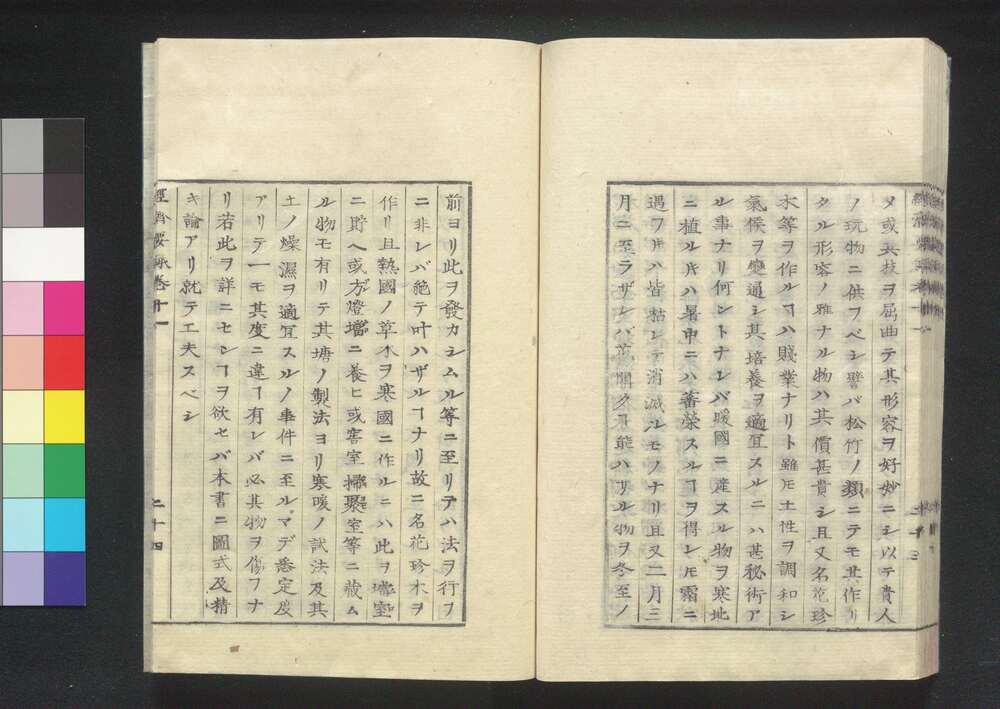 メ或其枝ヲ屈曲テ其形容ヲ好妙ニシ以テ貴人
ノ玩物ニ供フベシ譬バ松竹ノ類ニテモ其作リ
タル形容ノ雅ナル物ハ其價甚貴シ且又名花珍
木等ヲ作ルヿハ賤業ナリト雖𪜈土性ヲ調和シ
氣候ヲ變通シ其培養ヲ適宜スルニハ甚秘術ア
ル事ナリ何ントナレバ暖國ニ產スル物ヲ寒地
ニ植ル𪜈ハ暑中ニハ蕃榮スルヿヲ得レ𪜈霜ニ
遇フ𪜈ハ皆枯レテ消滅ルモノナリ且又二月三
月ニ至ラザレバ花開クヿ能ハザル物ヲ冬至ノ
二十三
前ヨリ此ヲ發カシムル等ニ至リテハ法ヲ行フ
ニ非レバ絶テ叶ハザルヿナリ故ニ名花珍木ヲ
作リ且熱國ノ草木ヲ寒國ニ作ルニハ此ヲ壚室
ニ貯ヘ或方燈壇ニ養ヒ或窖室掃聚室等ニ藏ム
ル物モ有リテ其塘ノ製法ヨリ寒暖ノ試法及其
土ノ燥濕ヲ適宜スルノ事件ニ至ルマデ悉定度
アリテ一モ其度ニ違ヿ有レバ必其物ヲ傷フナ
リ若此ヲ詳ニセンヿヲ欲セバ本書ニ圖式及精
キ論アリ就テ工夫スベシ
經濟要録卷十一
二十四